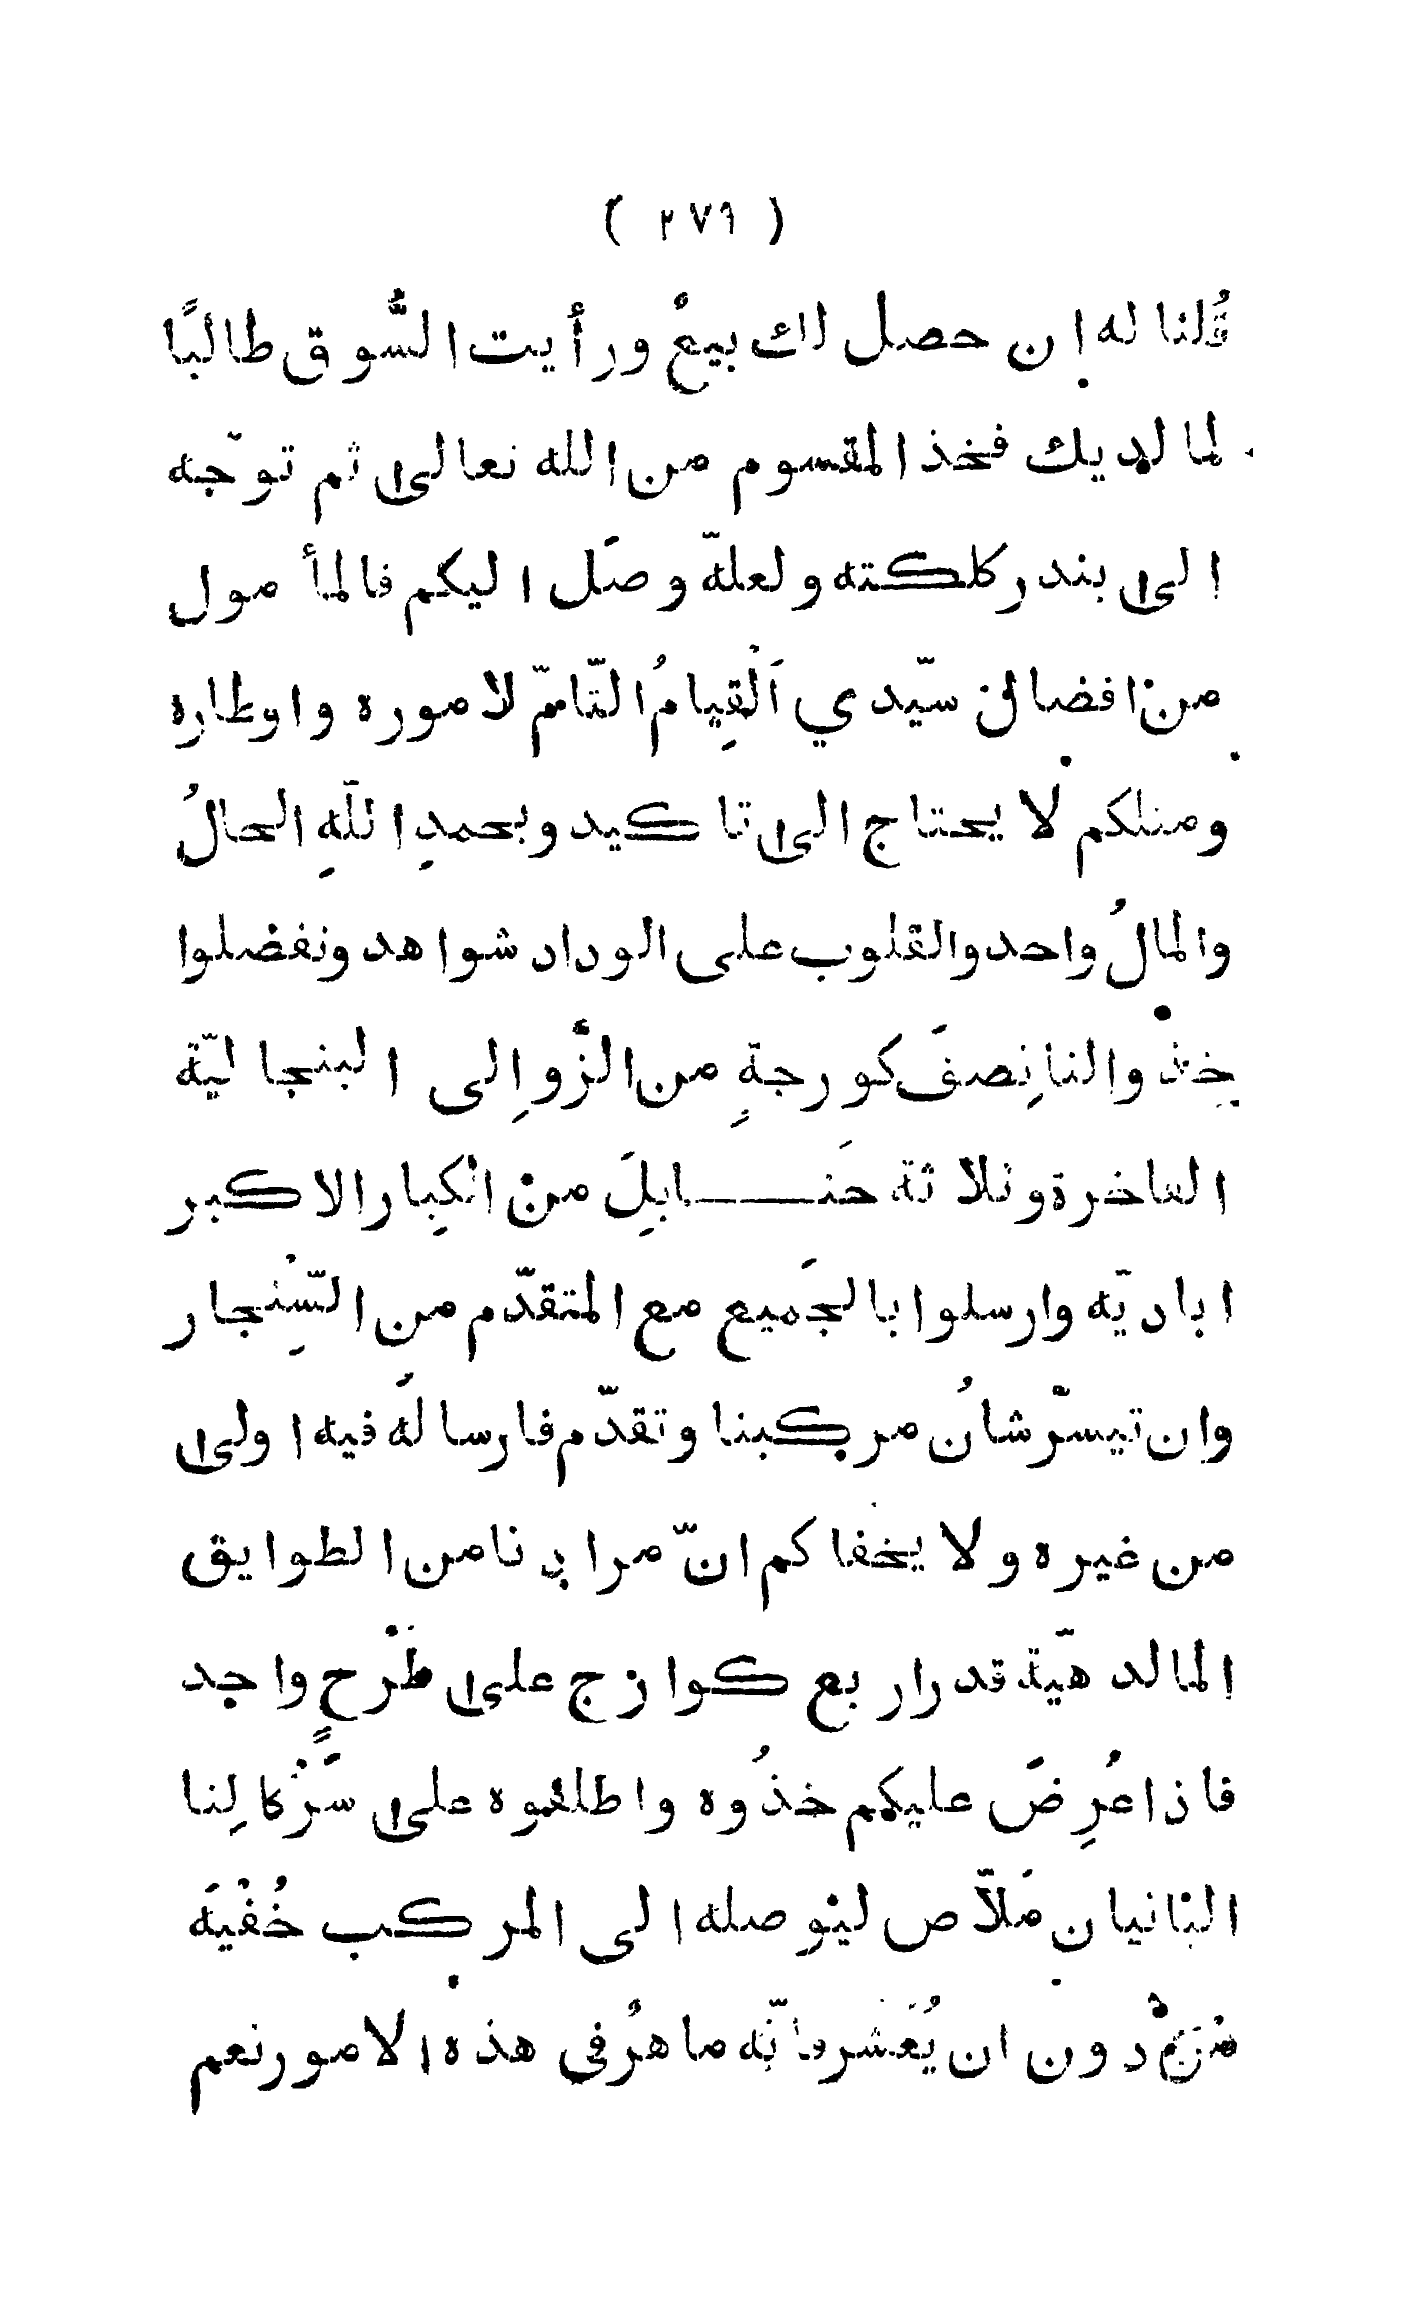 ( ٢٧٩ )
قُلنا له إن حصل لك بيعٌ ورأيت السُّوق طالبًا
لما لديك فخذ المقسوم من الله تعالى ثم توجّه
الى بندر كلكته ولعلهّ وصَل اليكم فالمأمول
من افضال سيّدي اَلْقِيامُ التّامّ لاموره واوطاره
ومثلكم لا يحتاج الى تاكيد وبحمدِ اللّهِ الحالُ
والمالُ واحد والقلوب على الوداد شواهد وتفضلوا
خذوا لنا نِصفَ كورجةٍ من الزُّوالِى البنجاليّة
الفاخرة وثلاثة حَنـــابِلَ من الكِبار الاكبر
اباديّه وارسلوا بالجَميع مع المتقدّم من السِّنجار
وان تيسّر شانُ مركبنا وتقدّم فارسالُه فيه اولى
من غيره ولا يخفاكم انّ مرادنا من الطوايق
المالدهيّة قدر اربع كوارج على طَرْحٍ واحد
فاذا عُرِضَ عليكم خذُوه واطلقوه على سَرْكالِنا
البانيان مَلاّص ليوصله الى المركب خُفْيَه
من دون ان يُعَشر فانّه ماهرُ في هذه الامور نعم